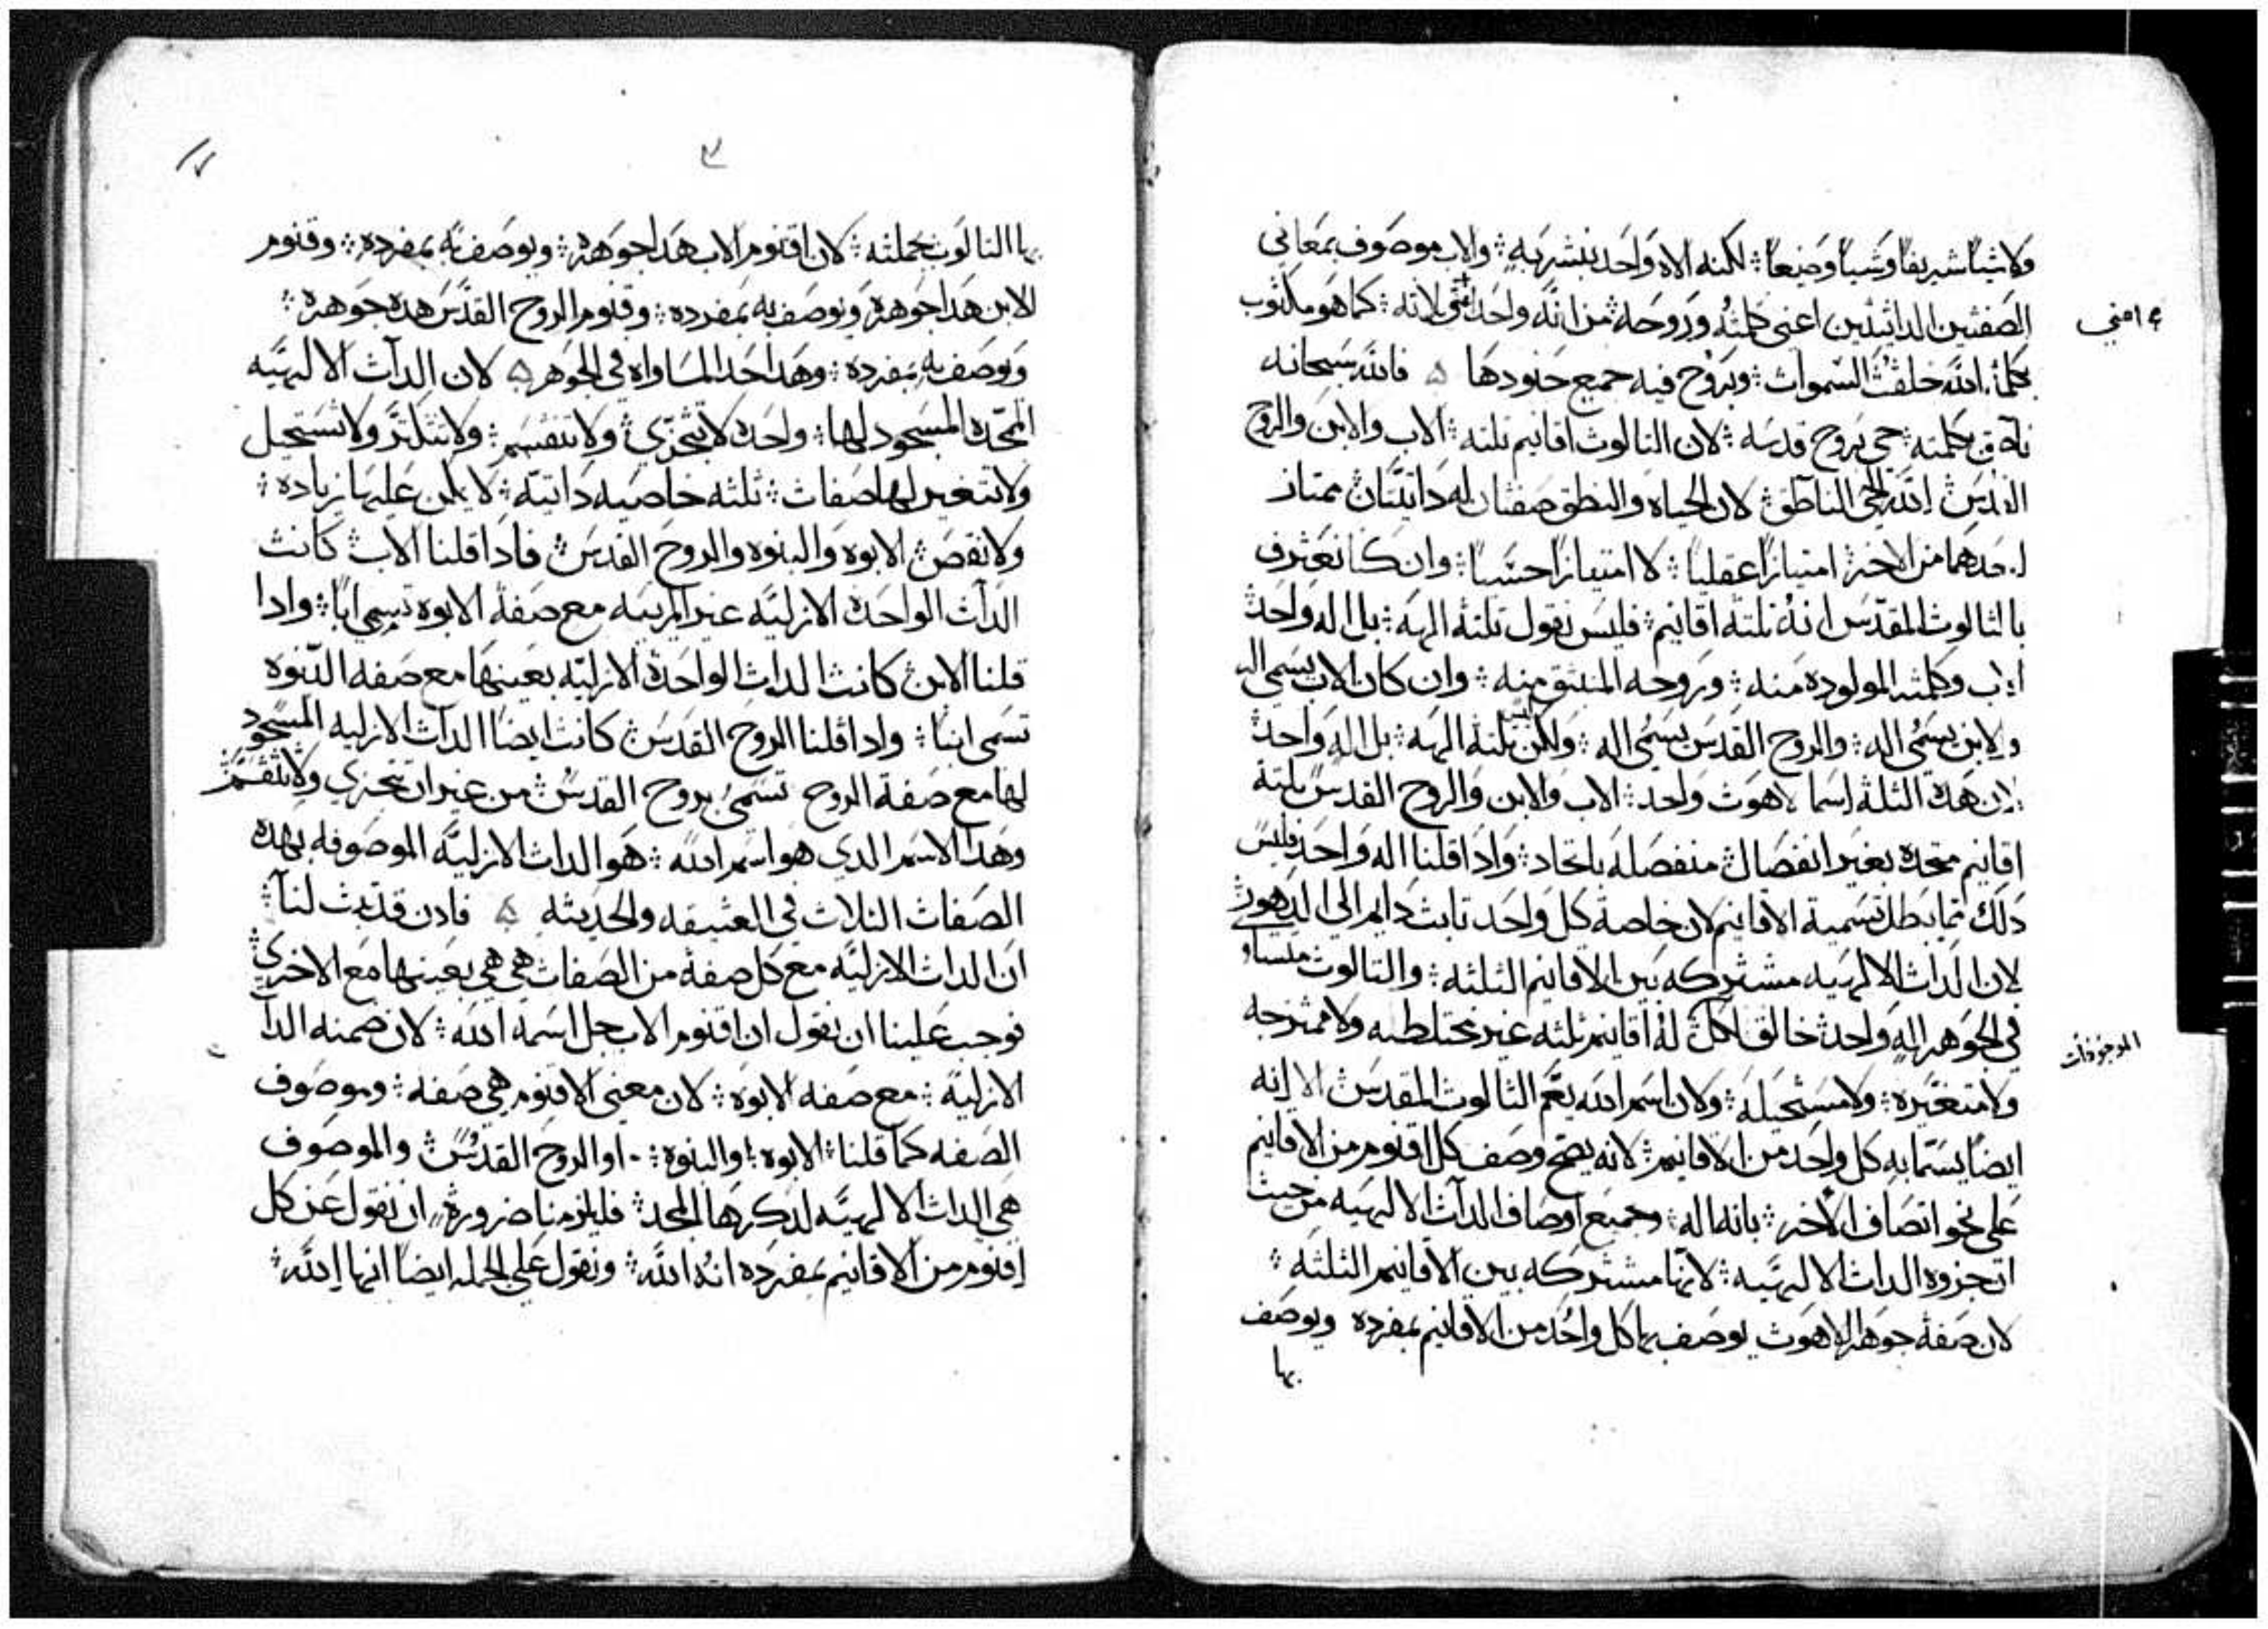 ولا شيئا شريفا وشيا وضيعا؛ لكنه الاه واحد بنشر به؛ والاب موصوف بمعاني
الصفتين الداتيتين اعني كلمته وروحه؛ من انه واحد اثني لانه؛ كما هو مكتوب
اعني
بكلمة الله خلقت السموات؛ وبروح فيه جميع جنودها ه فالله سبحانه
ناطق بكلمته؛ حي بروح قدسه؛ لان التالوت اقانيم تلته؛ الاب والابن والروح
القدس؛ الله الحي الناطق؛ لان الحياه والنطق صفتان له داتيتان؛ ممتاز
احدهما من الاخر؛ امتيازا عقليا؛ لا امتيازا حسيا؛ وان كنا نعترف
بالتالوت المقدس انه تلته اقانيم؛ فليس نقول تلته الهه؛ بل اله واحد؛
اب وكلمته المولوده منه؛ وروحه المنبتق منه؛ وان كان الاب يسمي اله
والابن يسمي اله؛ والروح القدس يسمي اله؛ ولكن ليس تلته الهه؛ بل اله واحد؛
لان هده التلته اسما لاهوت واحد؛ الاب والابن والروح القدس تلته
اقانيم متحده بغير انفصال؛ منفصله باتحاد؛ وادا قلنا اله واحد فليس
دلك مما يبطل تسميه الاقانيم لان خاصة كل واحد تابت دايم الي الدهور؛
لان الدات الالهيه مشتركه بين الاقانيم التلته؛ والتالوت متساو
في الجوهر اله واحد خالق الكل له اقانيم تلته غير مختلطه ولا ممتزجه
الموجودات
ولا متغيره؛ ولا مستحيله؛ ولان اسم الله يعم التالوت المقدس الا انه
ايضا يسما به كل واحد من الاقانيم؛ لانه يصح وصف كل اقنوم من الاقانيم
علي نحو اتصاف الاخر؛ بانه اله؛ وجميع اوصاف الدات الالهيه من حيث
الدات الالهيه؛ لانها مشتركه بين الاقانيم التلته؛
لان صفة جوهر الاهوت يوصف بها كل واحد من الاقانيم بمفرده ويوصف
بها
٣
بها التالوت بجملته؛ لان اقنوم الاب هدا جوهره؛ ويوصف به بمفرده؛ وقنوم
الابن هدا جوهره ويوصف به بمفرده؛ وقنوم الروح القدس هده جوهره؛
ويوصف به بمفرده؛ وهدا حد المساواه في الجوهر ه لان الدات الالهيه
المتحده المسجود لها؛ واحده لا تتجزي؛ ولا تنقسم؛ ولا تتكتر ولا تستحيل
ولا تتغير لها صفات؛ تلته خاصيه داتيه؛ لا يمكن عليها زياده؛
ولا نقص؛ الابوه والبنوه والروح القدس؛ فادا قلنا الاب؛ كانت
الدات الواحده الازليه غير المرييه مع صفة الابوه تسمي ابا؛ وادا
قلنا الابن؛ كانت الدات الواحدة الازليه بعينها مع صفه البنوه
تسمي ابنا؛ وادا قلنا الروح القدس؛ كانت ايضا الدات الازليه المسجود
لها مع صفة الروح تسمي بروح القدس؛ من غير ان تتجزي ولا تنقسم؛
وهدا الاسم الدي هو اسم الله؛ هو الدات الازليه الموصوفه بهده
الصفات التلات في العتيقه والحديته ه فادن قد تبت لنا؛
ان الدات الازليه مع كل صفة من الصفات؛ هي هي بعينها مع الاخري؛
فوجب علينا ان نقول ان اقنوم الاب جل اسمه الله؛ لان ضمنه الدا
الازليه؛ مع صفه الابوه؛ لان معني الاقنوم هي صفه؛ وموصوف
الصفه كما قلنا؛ الابوه؛ او البنوه؛ او الروح القدس؛ والموصوف
هي الدات الالهيه لدكرها المجد؛ فليلزمنا ضرورة؛ ان نقول عن كل
اقنوم من الاقانيم بمفرده انه الله؛ ونقول علي الجمله ايضا انها الله؛